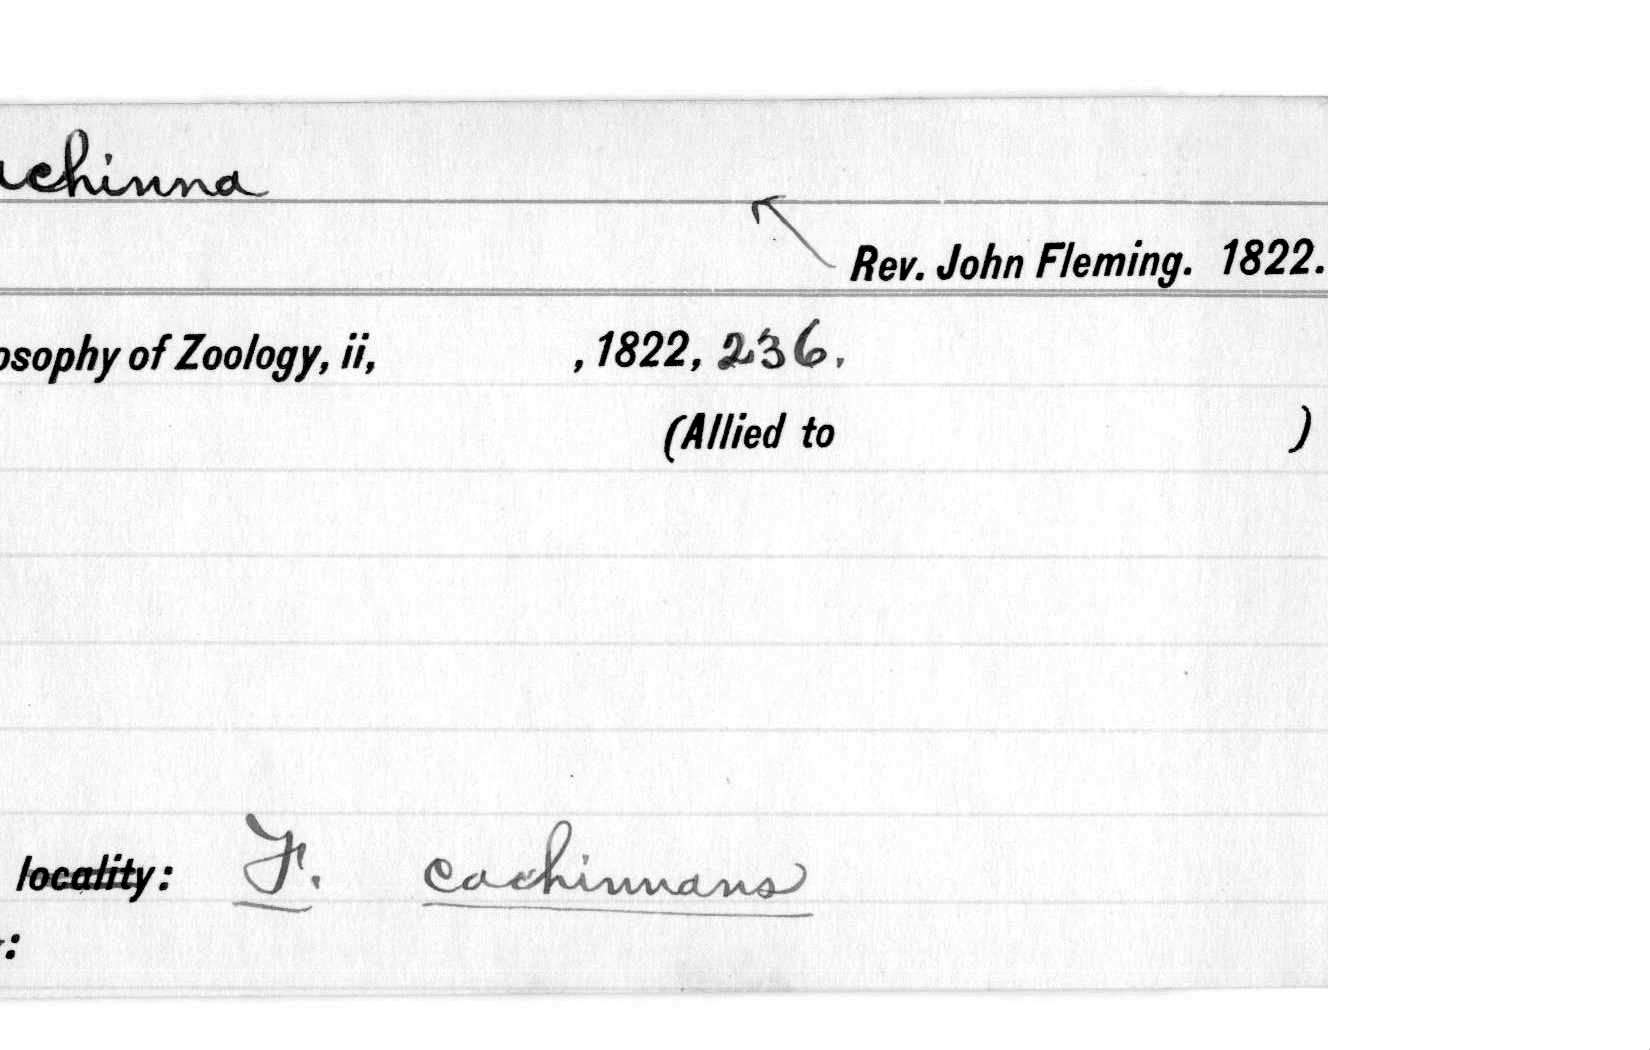 achinna
Rev. John Fleming. 1822.
osophy of Zoology, ii, , 1822, 236.
(Allied to )
locality: F. cachinnans
: